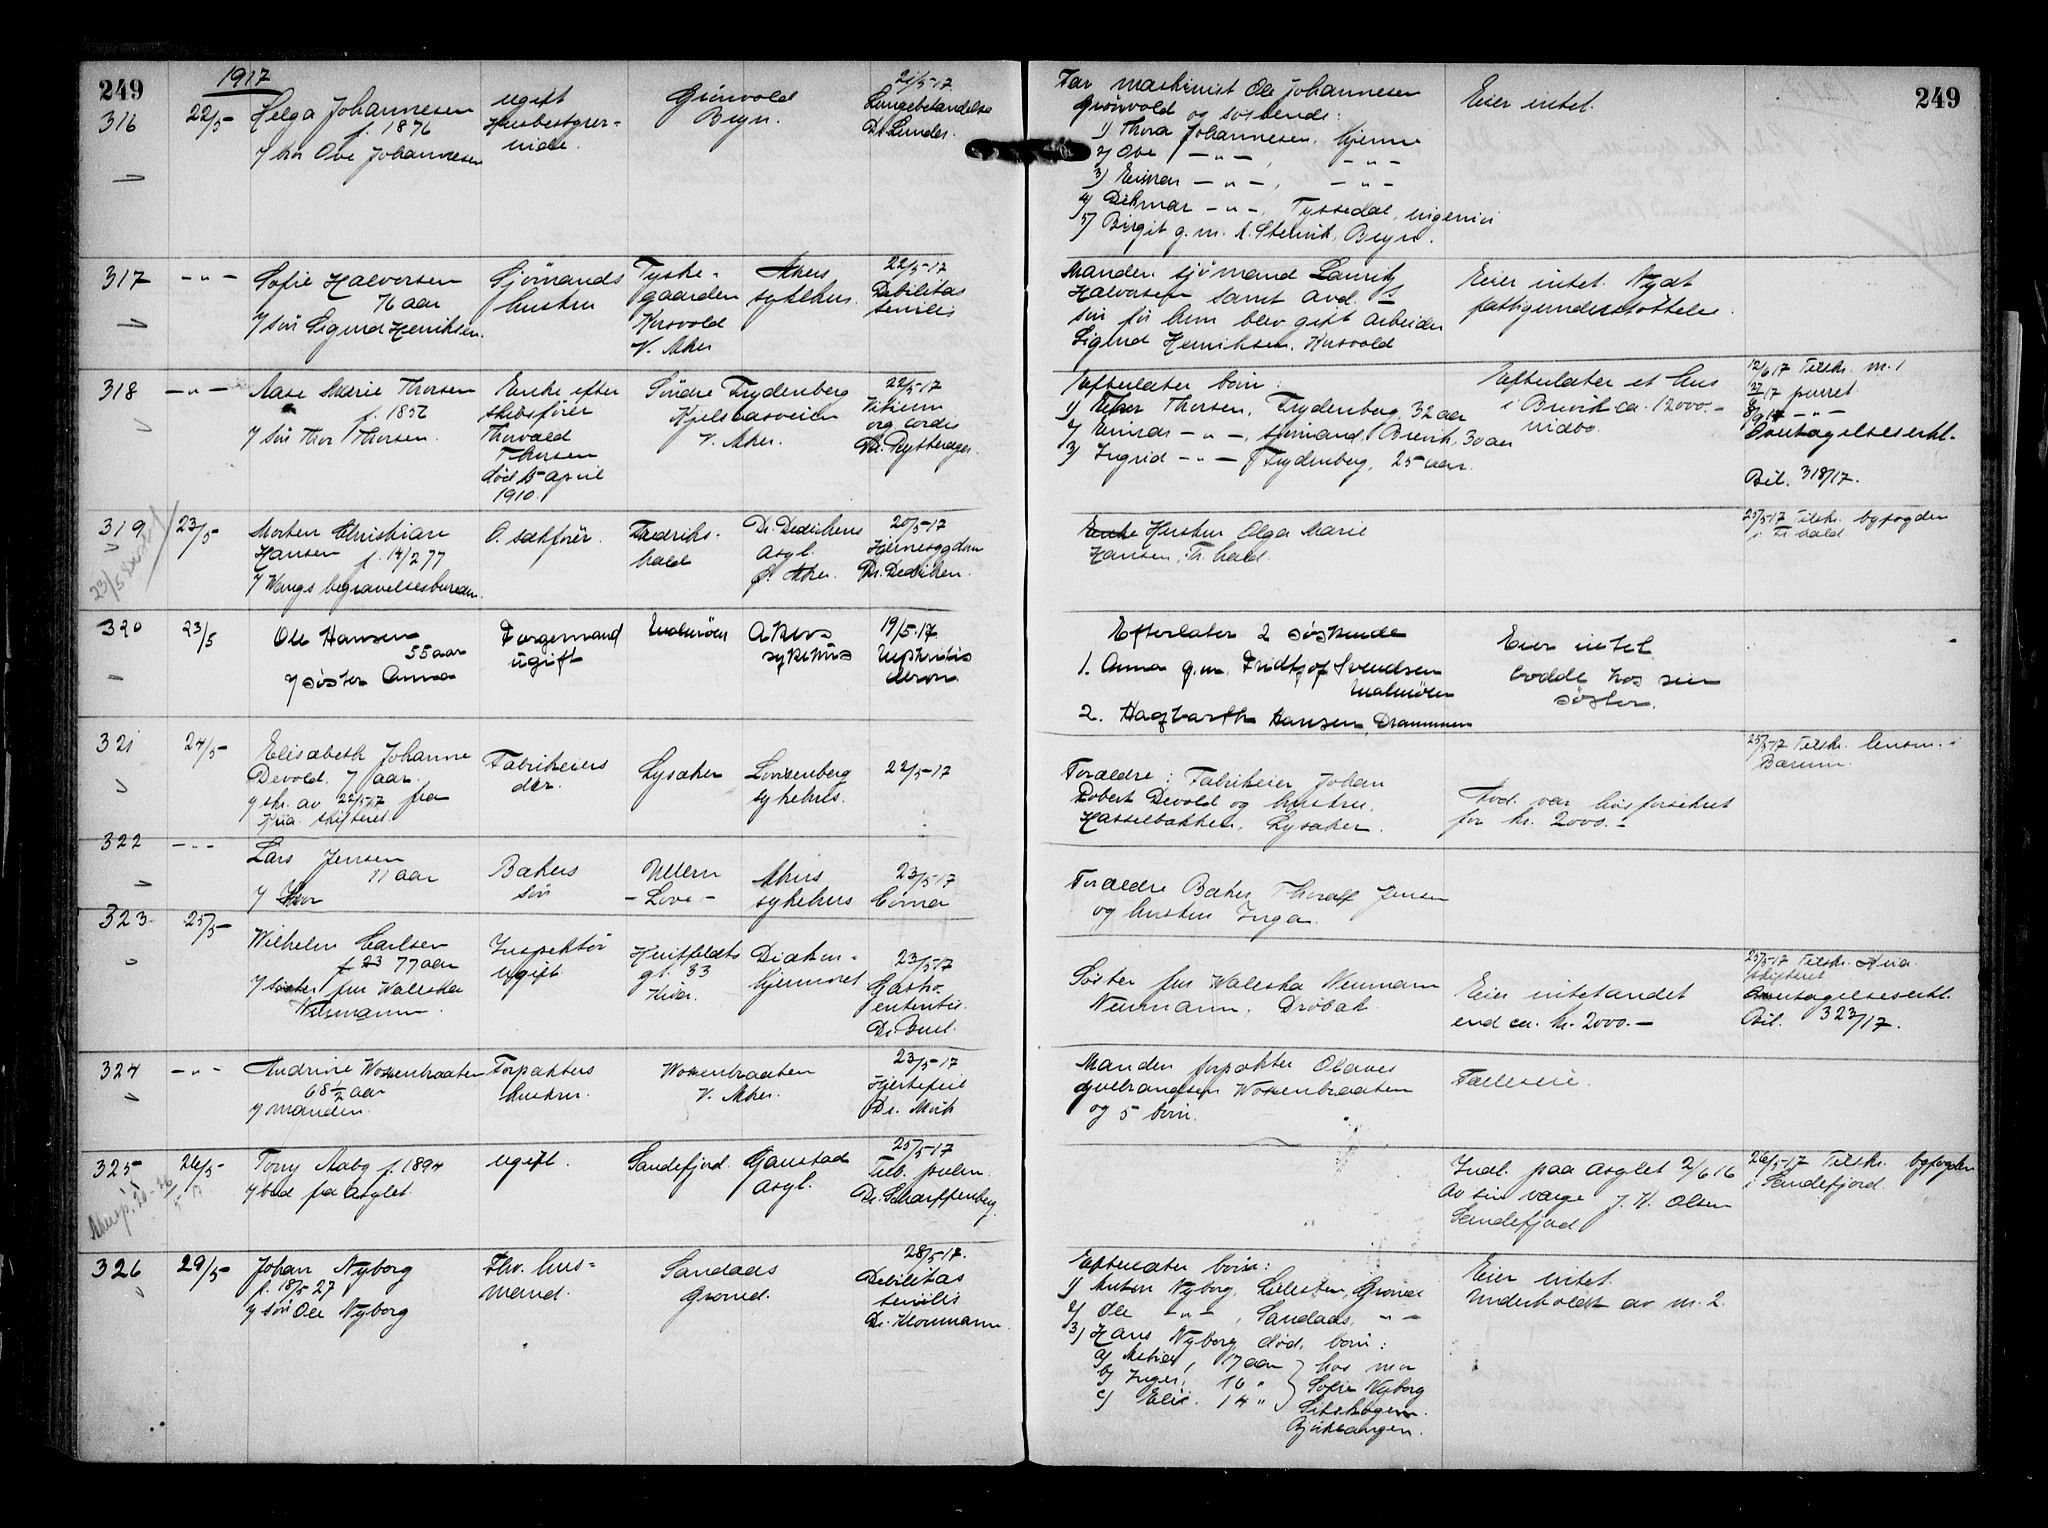 249
1917
249
316
22/5
Helga Johannesen
f. 1876
v/ bror Ove Johannesen
ugift
Husbestyrer-
inde.
Grönvold
Bryn.
21/5-17
Lungebetændelse
Dr. Lunder.
Far maskinist Ole Johannesen
Grönvold og söskende:
1) Thora Johannesen, hjemme
2) Ove — " —, — " —
3) Einar — " —, — " —
4) Ditmar — " —, Tyssedal, ingeniör
5) Birgit g. m. Bryn.
Eier intet.
317
— " —
Sofie Halvorsen
76 aar
v/ sön Sigurd Henriksen.
Sjömands
hustru
Tyske-
gaarden
Korsvold
V. Aker
Akers
sykehus.
22/5-17
Debilitas
senilis
Manden sjömand Lauritz
Halvorsen samt avd. s
sön för hun blev gift arbeider
Sigurd Henriksen, Korsvold
Eier intet. Nydt
fattigunderstöttelse.
318
— " —
Aase Marie Thorsen
f. 1852
v/ sön Thor Thorsen.
Enke efter
skibsförer
Thorvald
Thorsen
död 15 april
1910.
Söndre Frydenberg
Kjelsaasveien
V. Aker.
22/5-17
Vitium
org. cordis
Dr. Rytterager.
Efterlater barn:
1) Thorsen, Frydenberg, 32 aar
2) Einar — " —, sjömand, Brevik, 30 aar
3) Ingrid — " — Frydenberg, 25 aar.
Efterlater et hus
i Brevik ca. 12000.-
indbo.
12/6 17 Tilskr. m. 1
17 purret.
8/9 17 — " —
Overtagelseserkl.
Bil. 318/17.
319
23/5
Morten Christian
Hansen f. 14/2 77
v/ Wangs begravelsesbureau.
O. sakförer.
Fredriks-
hald
Dr. Dedichens
asyl.
Ø. Aker.
20/5-17
Hjernesygdom
Dr. Dedichen.
Enke Hustru Olga Marie
Hansen, Fr. hald.
25/5-17 Tilskr. byfogden
i Fr. hald
320
23/5
Ole Hansen
55 aar
v/ söster Anna
Færgemand
ugift
Malmöen
Akers
sykehus
19/5-17.
Nephritis
chron.
Efterlater 2 söskende
1. Anna g.m. Fridtjof Svendsen
Malmöen
2. Hagbarth Hansen, Drammen
Eier intet.
bodde hos sin
söster.
321
24/5-
Elisabeth Johanne
Devold. 7 aar.
v/ skr. av 22/5-17 fra
Kria. skifteret
Fabrikeiers
dtr.
Lysaker
Lovisenberg
sykehus.
22/5-17
Forældre: Fabrikeier Johan
Robert Devold og hustru.
Hasselbakken, Lysaker.
Avd. var livsforsikret
for kr. 2000.-
25/5-17 Tilskr. lensm. i
Bærum.
322
— " —
Lars Jensen
11 aar
v/ mor
Bakers
sön
Ullern
- Love -
Akers
sykehus
23/5-17
Coma
Forældre Baker Thoralf Jensen
og hustru Inga.
323
25/5-
Wilhelm Carlsen
f. 23 77 aar
v/ söster fru Waleska
Neumann.
Inspektör
ugift
Huitfeldts
gt. 33
Kria.
Diakon-
hjemmet
23/5-17
Gastro
enteritis.
Söster fru Waleska Neumann
Neumann, Dröbak.
Eier intet andet
end ca. kr. 2000.-
25/5-17 Tilskr. Kria.
skifteret
Overtagelseserkl.
Bil. 323/17.
324
— " —
Andrine Woxenbraaten
68 1/2 aar
v/ manden.
Forpakters
hustru.
Woxenbraaten
V. Aker.
23/5-17
Hjertefeil
Dr. Mörk
Manden forpakter Olaves
Woxenbraaten
og 5 barn.
Fælleseie.
325
26/5-
Tony Aaby f. 1894
v/ bud fra Asylet.
ugift.
Sandefjord.
Gaustad
Asyl.
25/5-17
Tub. pulm.
Dr. Scharffenberg.
Indl. paa asylet 2/6 16
av sin værge J. H. Olsen
Sandefjord
26/5-17 Tilskr. byfogden
i Sandefjord.
326
29/5-
Johan Nyborg
f. 18/5-27
v/ sön Ole Nyborg
Fhv. hus-
mand.
Sandaas
Grorud.
28/5-17.
Debilitas
senilis
Efterlater barn:
1) Anton Nyborg, Grorud
2) Ole — " —, Sandaas, — " —
3) Hans Nyborg död, barn:
a) 17 aar
b) Inger, 16 "
c) 14 "
hos mor
Sofie Nyborg
Bjökelangen.
Eier intet.
Underholdt av m. 2.